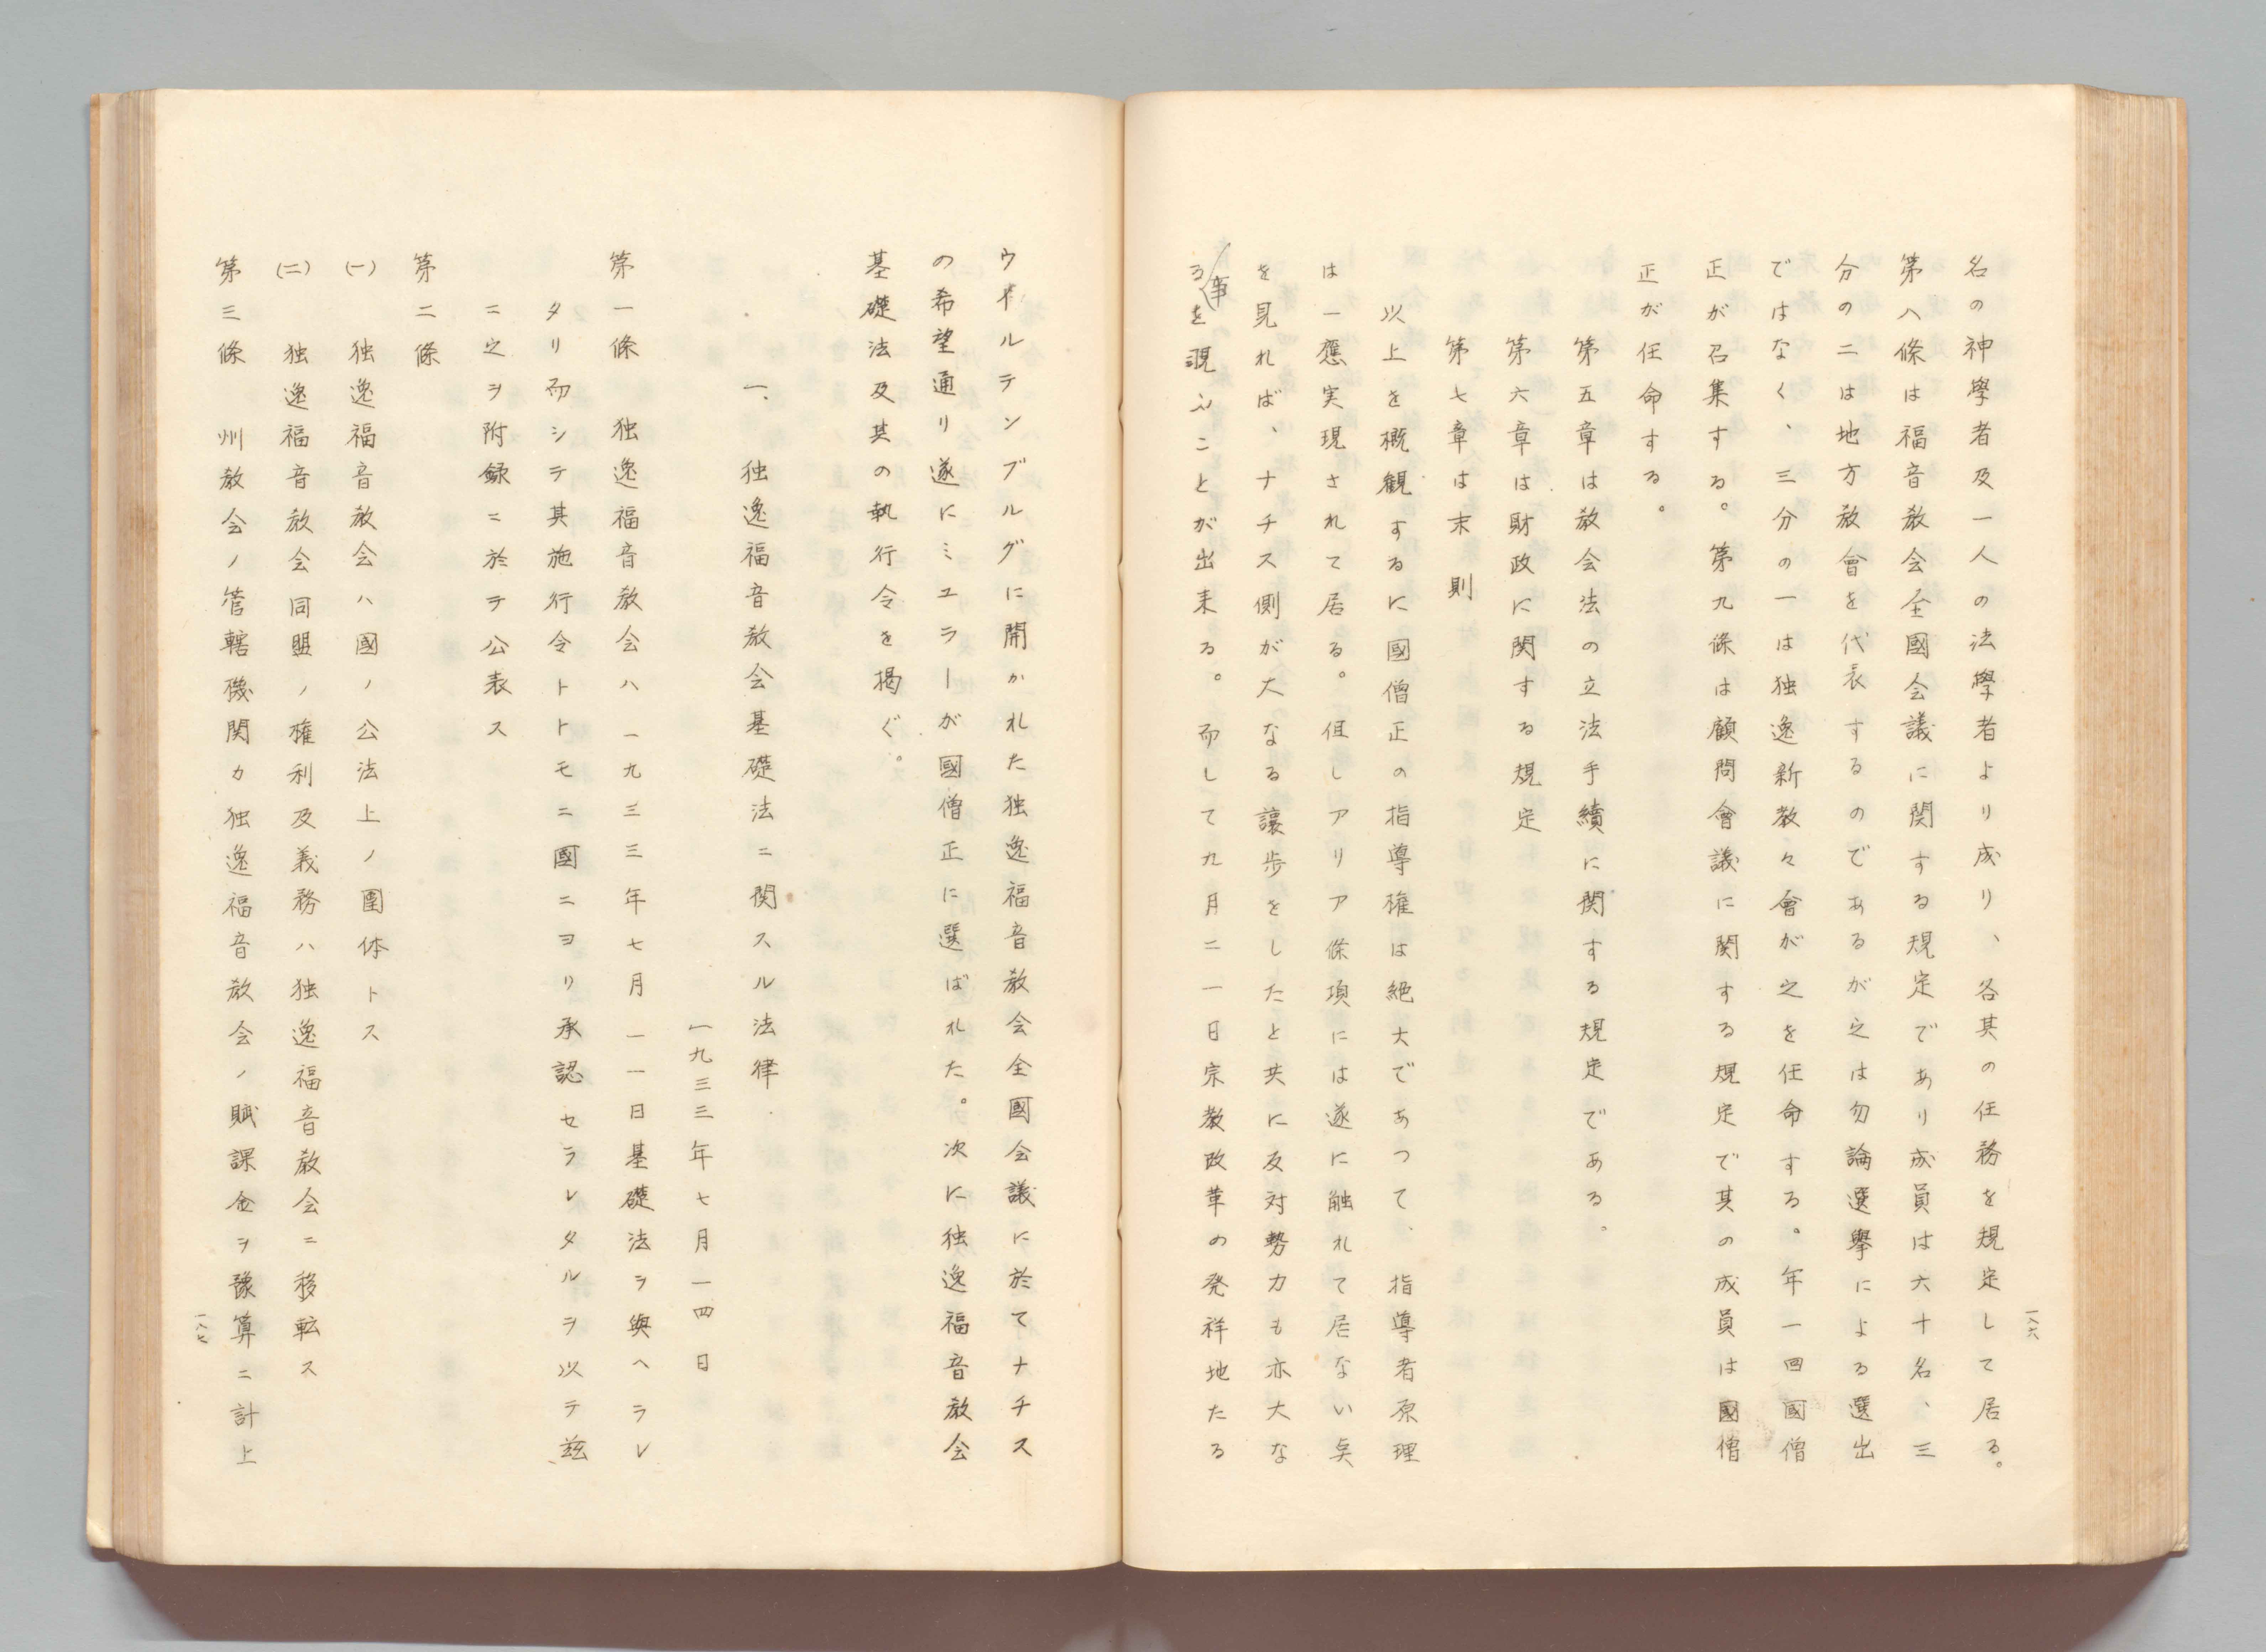 名の神學者及一人の法學者より成り、各其の任務を規定して居る。
第八條は福音教会全國会議に関する規定であり成員は六十名、三
分の二は地方教會を代表するのであるが之は勿論選擧による選出
ではなく、三分の一は独逸新教々會が之を任命する。年一回國僧
正が召集する。第九條は顧問會議に関する規定で其の成員は國僧
正が任命する。
第五章は教会法の立法手續に関する規定である。
第六章は財政に関する規定
第七章は末則
以上を概観するに國僧正の指導権は絶大であつて、指導者原理
は一應実現されて居る。但しアリア條項には遂に触れて居ない矣
を見れば、ナチス側が大なる讓歩をしたと共に反対勢力も亦大な
る事を覗ふことが出来る。而して九月二一日宗教改革の発祥地たる
一八六
ウイルテンブルグに開かれた独逸福音教会全國会議に於てナチス
の希望通り遂にミユラーが國僧正に選ばれた。次に独逸福音教会
基礎法及其の執行令を掲ぐ。
一、独逸福音教会基礎法ニ関スル法律
一九三三年七月一四日
第一條　独逸福音教会ハ一九三三年七月一一日基礎法ヲ與ヘラレ
タリ而シテ其施行令トトモニ國ニヨリ承認セラレタルヲ以テ茲
ニ之ヲ附録ニ於テ公表ス
第二條
(一)　独逸福音教会ハ國ノ公法上ノ團体トス
(二)　独逸福音教会同盟ノ権利及義務ハ独逸福音教会ニ移転ス
第三條　州教会ノ管轄機関カ独逸福音教会ノ賦課金ヲ豫算ニ計上
一八七